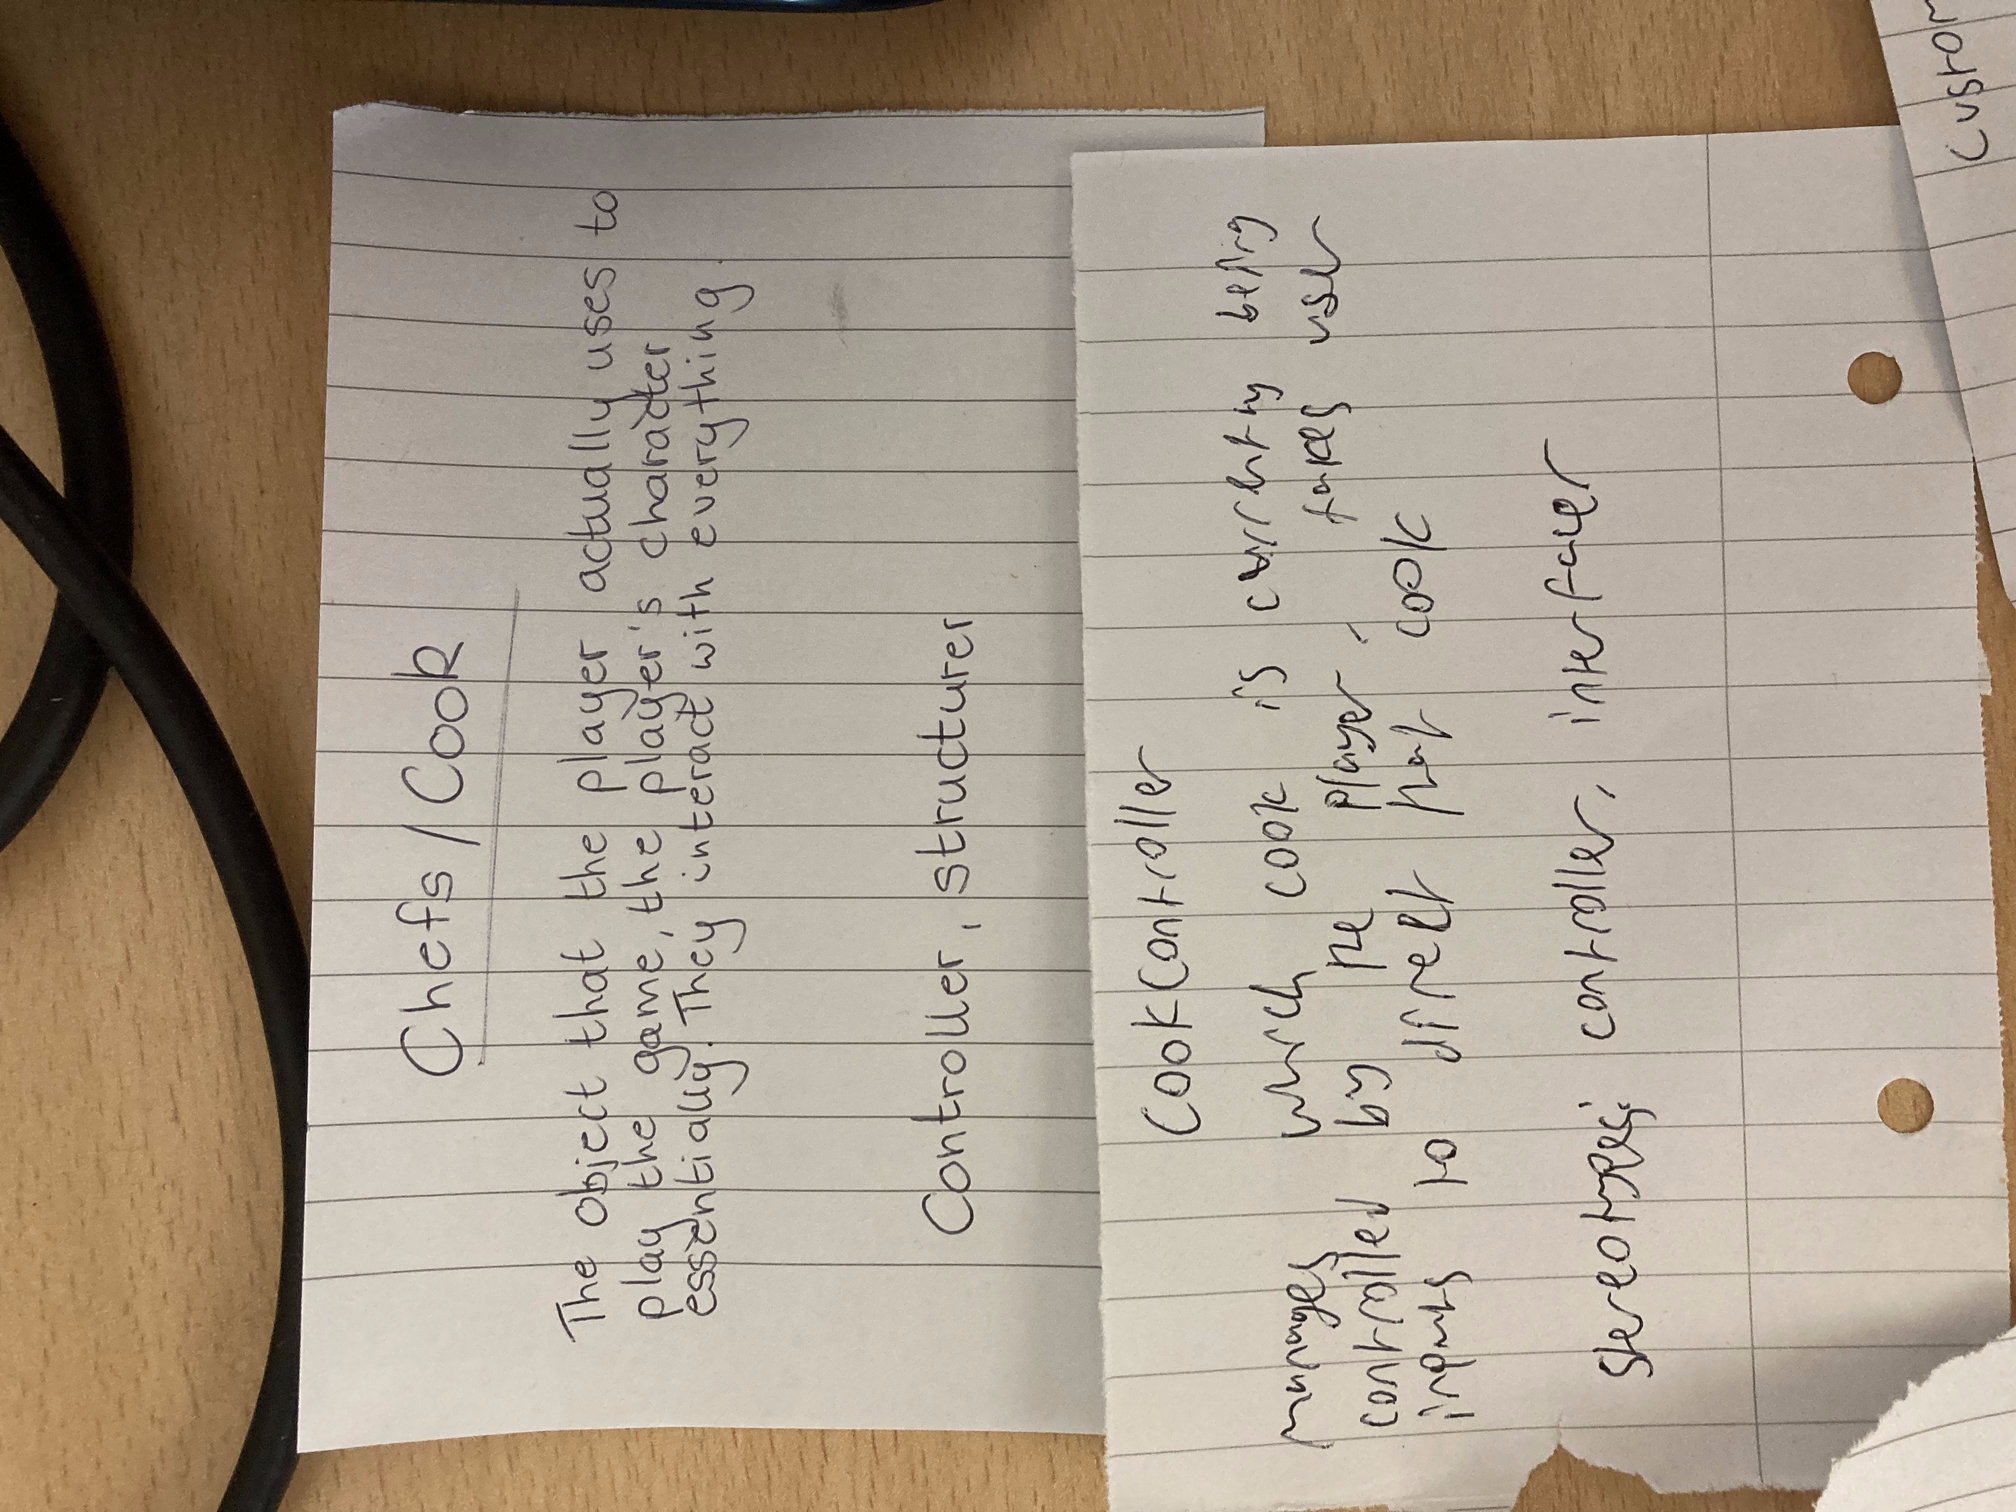 Chefs / Cook
The object that the player actually uses to
play the game, the player's character
essentially. They interact with everything.
Controller, structurer
CookController
manages which cook is currently being
controlled by the player, takes user
inputs to direct that cook
Stereotypes: controller, interfacer